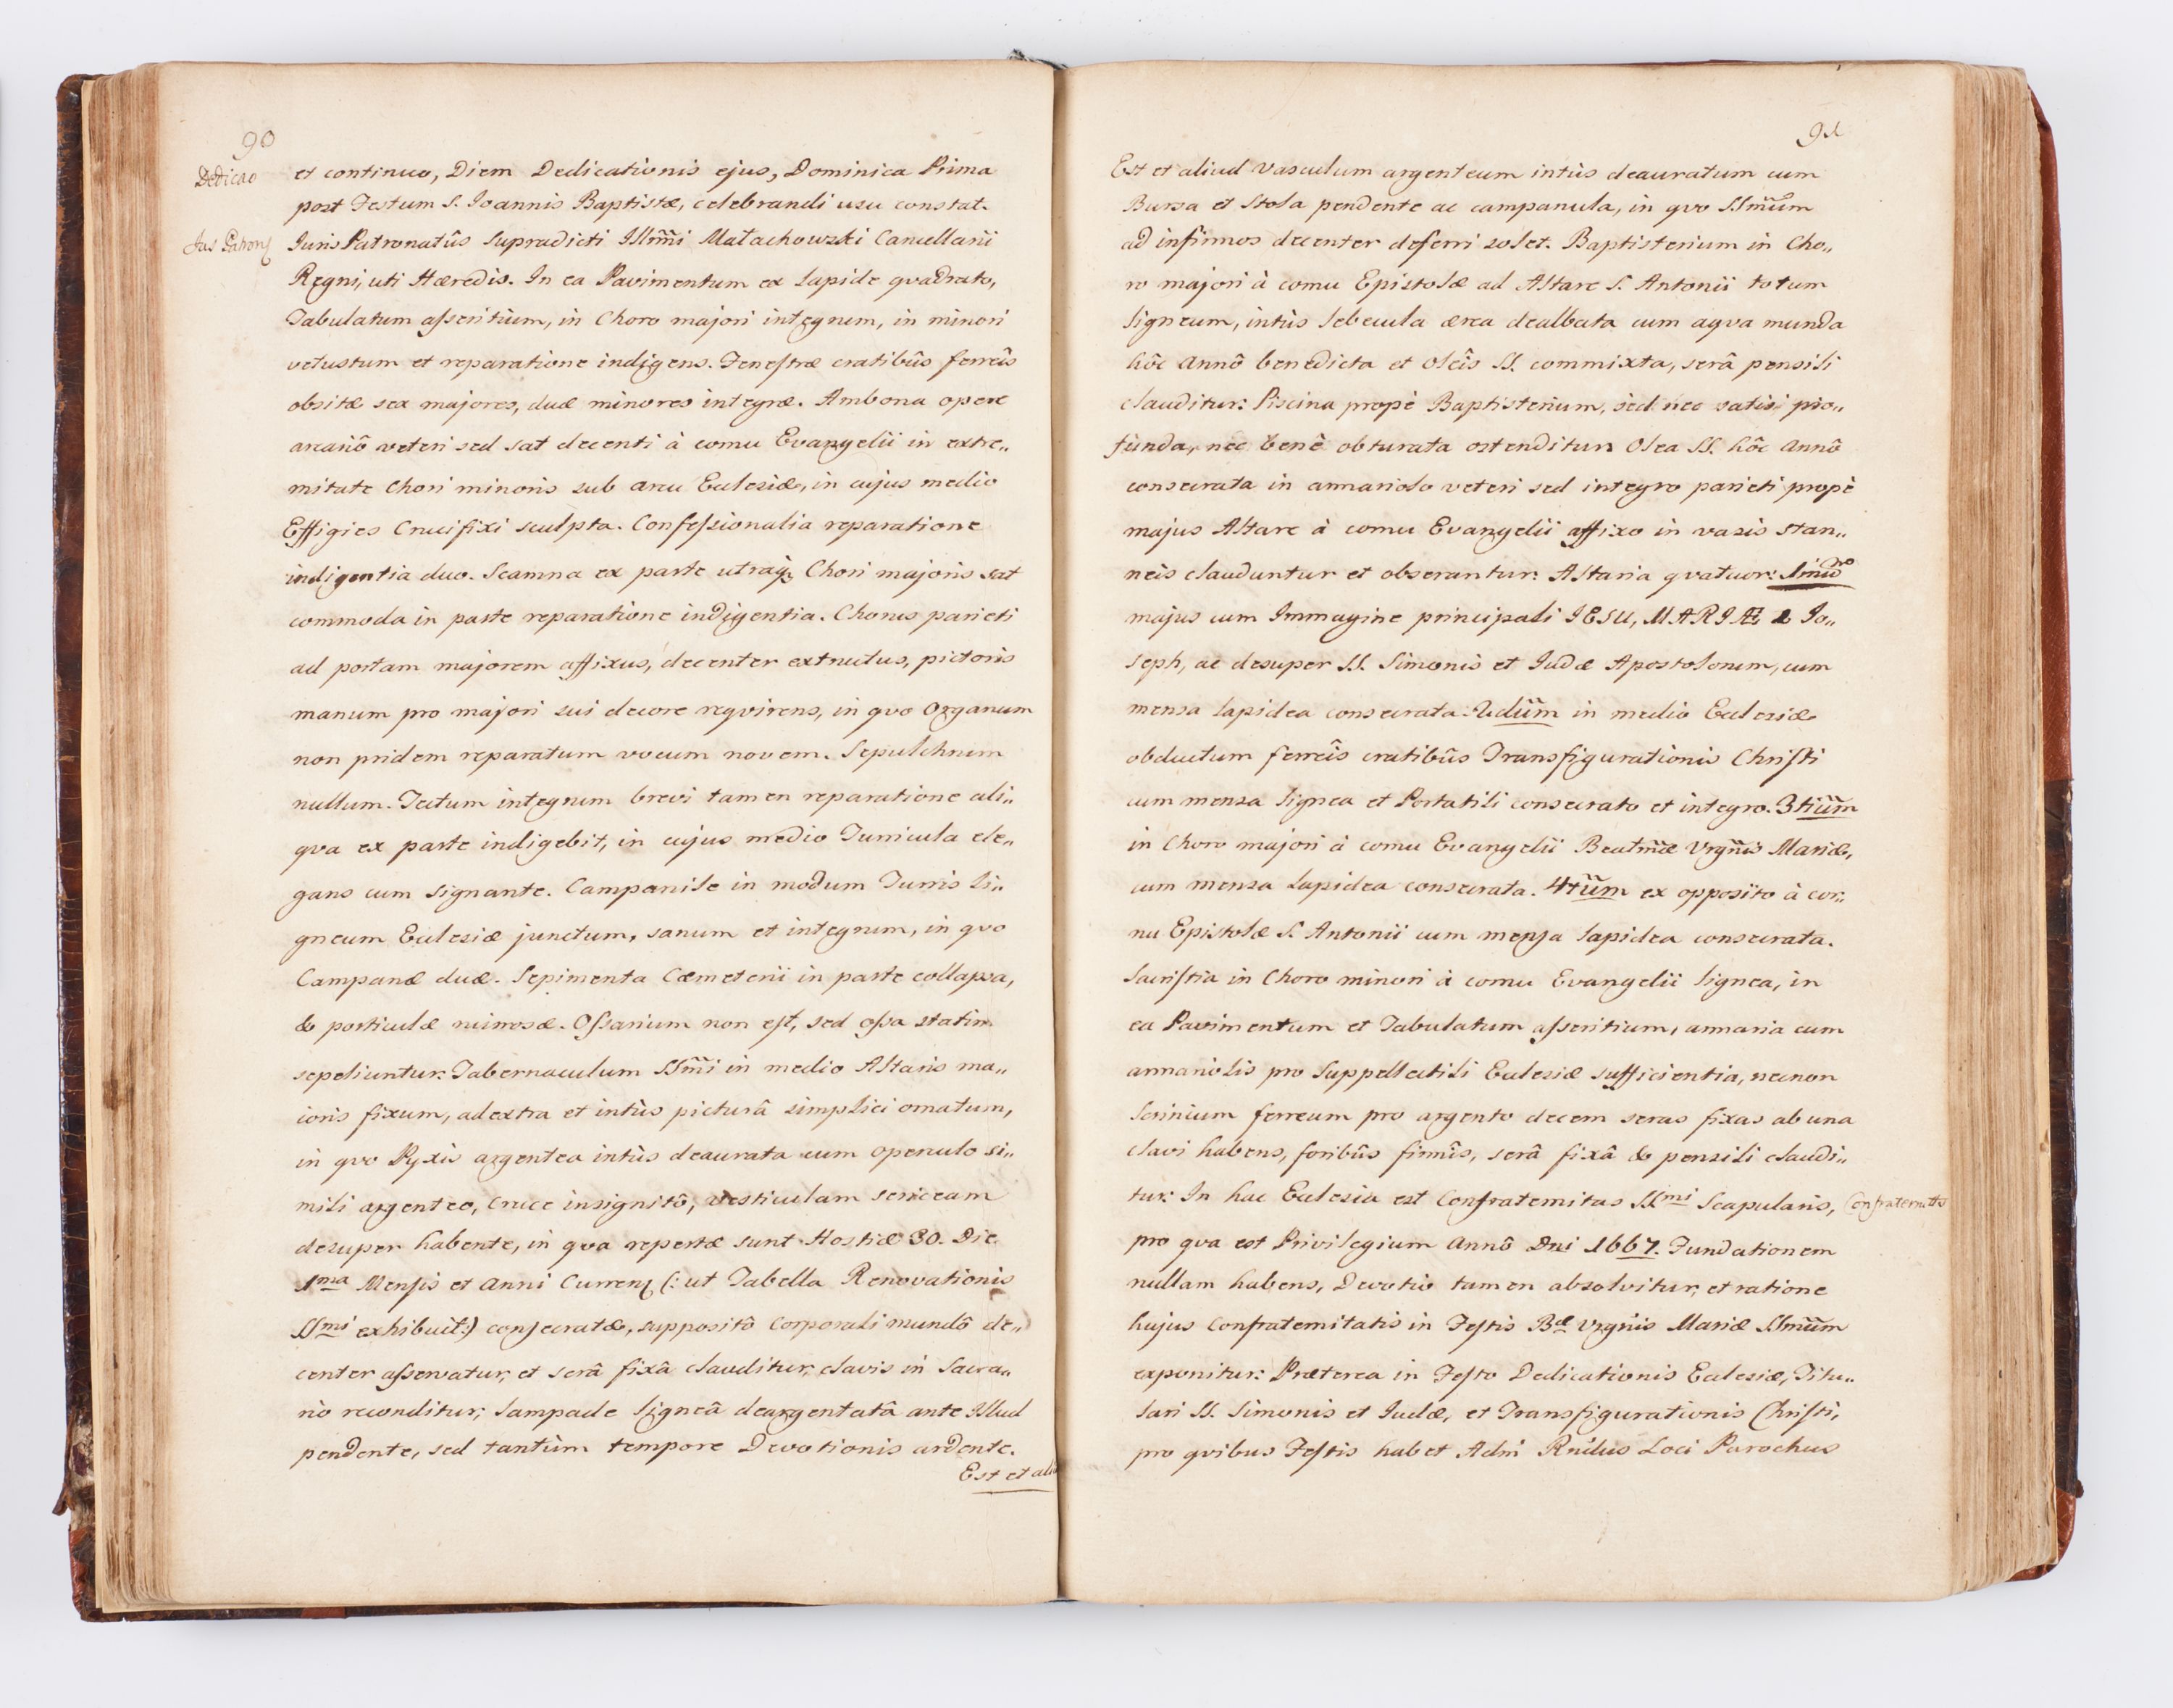 90
Dedicao
et continuo, Diem Dedicationis ejus, Dominica Prima
post Festum S. Ioannis Baptistæ, celebrandi usu constat.
Jus Patron
Iuris Patronatûs supradicti Illm̃i Małachowski Cancellarii
Regni, uti Hæredis. In ea Pavimentum ex lapide qvadrato,
Tabulatum asseritium, in Choro majori integrum, in minori
vetustum et reparatione indigens. Fenestræ cratibûs ferreîs
obsitæ sex majores, duæ minores integræ. Ambona opere
arcariô veteri sed sat decenti à cornu Evangelii in extre„
mitate Chori minoris sub arcu Ecclesiæ, in cujus medio
Effigies Crucifixi sculpta. Confessionalia reparatione
indigentia duo. Scamna ex parte utraq; Chori majoris sat
commoda in parte reparatione indigentia. Chorus parieti
ad portam majorem affixus, decenter extructus, pictoris
manum pro majori sui decore reqvirens, in qvo Organum
non pridem reparatum vocum novem. Sepulchrum
nullum. Tectum integrum brevi tamen reparatione ali„
qva ex parte indigebit, in cujus medio Turricula ele„
gans cum signante. Campanile in modum Turris li„
gneum Ecclesiæ junctum, sanum et integrum, in qvo
Campanæ duæ. Sepimenta Cæmeterii in parte collapsa,
& porticulæ ruinosæ. Ossarium non est, sed ossa statim
sepeliuntur. Tabernaculum SSm̃i in medio Altaris ma„
ioris fixum, ad extra et intùs picturâ simplici ornatum,
in qvo Pyxis argentea intùs deaurata cum operculo si„
mili argenteo, Cruce insignitô, vesticulam sericeam
desuper habente, in qva repertæ sunt Hostiæ 30. Die
1ma Mensis et Anni Curren (: ut Tabella Renovationis
SSmi exhibuit:) consecratæ, suppositô Corporali mundô de„
center asservatur, et serâ fixâ clauditur, clavis in Sacra„
rio reconditur; Lampade ligneâ deargentatâ ante Illud
pendente, sed tantùm tempore Devotionis ardente.
Est et ali
91
Est et aliud vasculum argenteum intùs deauratum cum
Bursa et Stola pendente ac campanula, in qvo SSmũm
ad infirmos decenter deferri solet. Baptisterium in Cho„
ro majori à cornu Epistolæ ad Altare S. Antonii totum
ligneum, intùs lebecula ærea dealbata cum aqva munda
hôc Annô benedicta et Oleîs SS. commixta, serâ pensili
clauditur: Piscina propè Baptisterium, sed nec satis pro„
funda, nec benè obturata ostenditur. Olea SS. hôc Annô
consecrata in armariolo veteri sed integro parieti propè
majus Altare à cornu Evangelii affixo in vasis stan„
neis clauduntur et obserantur: Altaria qvatuor: 1mũ
majus cum Immagine principali IESU, MARIÆ & Io„
seph, ac desuper SS. Simonis et Iudæ Apostolorum, cum
mensa lapidea consecrata. 2dũm in medio Ecclesiæ
obductum ferreîs cratibûs Transfigurationis Christi
cum mensa lignea et Portatili consecrato et integro. 3tiũm
in Choro majori à cornu Evangelii Beatm̃æ Vrgñis Mariæ,
cum mensa lapidea consecrata. 4tũm ex opposito à cor„
nu Epistolæ S. Antonii cum mensa lapidea consecrata.
Sacristia in Choro minori à cornu Evangelii lignea, in
ea Pavimentum et Tabulatum asseritium, armaria cum
armariolis pro Suppellectili Ecclesiæ sufficientia, necnon
Scrinium ferreum pro argento decem seras fixas ab una
clavi habens, foribûs firmîs, serâ fixâ & pensili claudi„
tur: In hac Ecclesia est Confraternitas SSmi Scapularis,
Confraternitas
pro qva est Privilegium Annô Dni 1667. Fundationem
nullam habens, Devotio tamen absolvitur, et ratione
hujus Confraternitatis in Festis Bæ Vrgñis Mariæ SSmũm
exponitur: Præterea in Festo Dedicationis Ecclesiæ, Titu„
lari SS. Simonis et Iudæ, et Transfigurationis Christi,
pro qvibus Festis habet Adm̃ Rñdus Loci Parochus